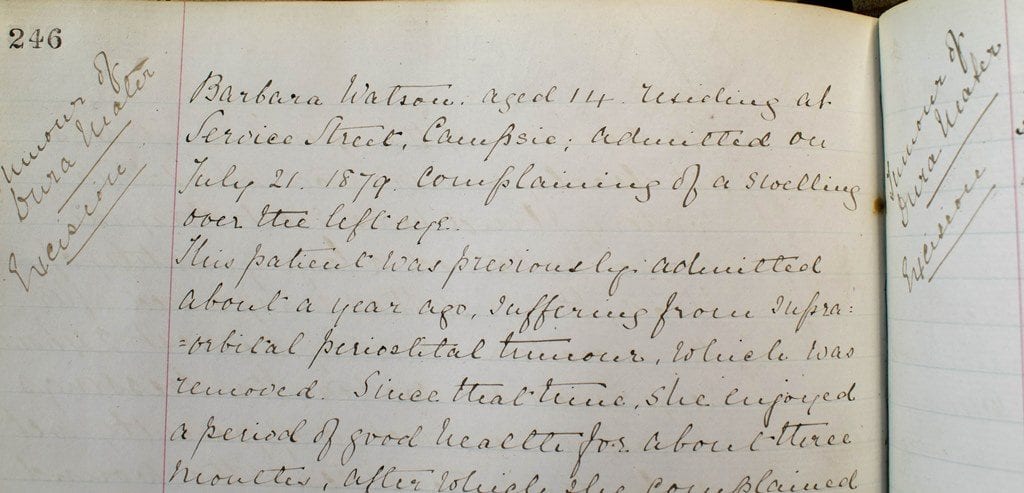 246
Tumour of
Dura Mater
Excision
Barbara Watson. aged 14. residing at
Service Street, Campsie; admitted on
July 21. 1879. complaining of a swelling
over the left eye.
This patient was previously admitted
about a year ago, suffering from Supra=
=orbital periostital tumour, which was
removed. Since that time, she enjoyed
a period of good health for about three
months, after which she complained
Tumour of
Dura Mater
Excision